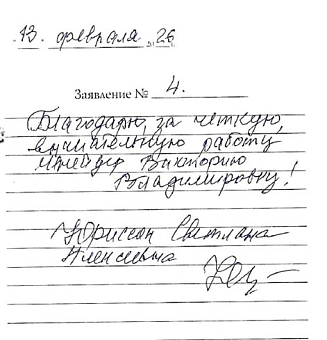 13. февраля 20 26
Заявление № 4.
Благодарю, за четкую,
внимательную работу
Шнейдер Викторию
Владимировну!
Юриссон Светлана
Алексеевна